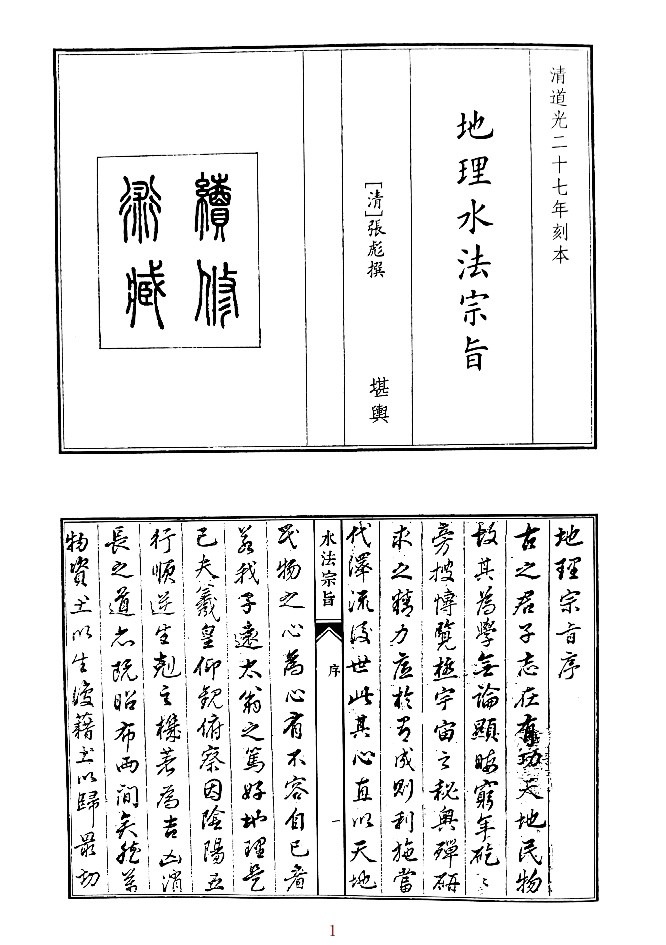 清道光二十七年刻本
地理水法宗旨
[清]張彪撰
堪輿
續修
術藏
地理宗旨序
古之君子志在有功天地民物
故其為學無論顯晦窮年矻〻
旁搜博覽極宇宙之秘奧殫研
求之精力底於有成則利施當
代澤流後世此其心直以天地
水法宗旨
序
一
民物之心為心有不容自已者
若我子遠太翁之篤好地理是
已夫羲皇仰觀俯察因陰陽五
行順逆生剋之機著為吉凶消
長之道亦既昭布兩間矣然萬
物資土以生復藉土以歸最切
1